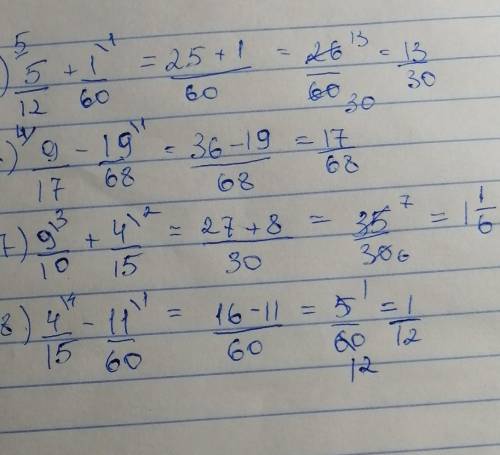 ) 5/12 \5 + 1/60 \1 = 25+1/60 = 26/60 13/30 = 13/30
) 9/17 \4 - 19/68 \1 = 36-19/68 = 17/68
7) 9/10 \3 + 4/15 \2 = 27+8/30 = 35/30 7/6 = 1 1/6
8) 4/15 \4 - 11/60 \1 = 16-11/60 = 5/60 1/12 = 1/12